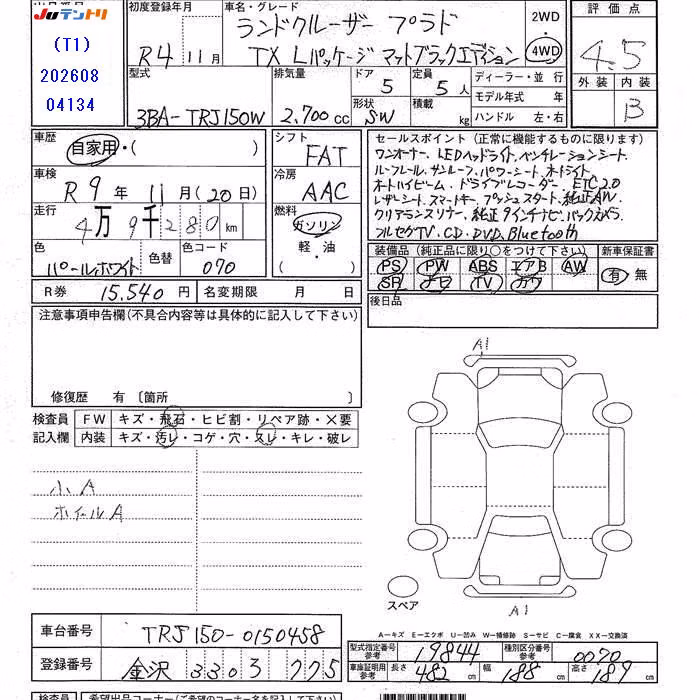 JUテントリ
(T1)
202608
04134
初度登録年月
R4 11月
車名・グレード
ランドクルーザー プラド
TX Lパッケージ マットブラックエディション
2WD
4WD
評価点
4.5
外装 内装
B
型式
3BA-TRJ150W
排気量
2,700cc
ドア
5
定員
5人
形状
SW
積載
kg
ディーラー・並行
モデル年式 年
ハンドル 左・右
車歴
自家用・( )
シフト
FAT
車検
R9年 11月(20日)
冷房
AAC
走行
4万9千280km
燃料
ガソリン
軽・油
( )
色
パールホワイト
色替
色コード
070
R券 15,540円
名変期限 月 日
セールスポイント(正常に機能するものに限ります)
ワンオーナー、LEDヘッドライト、ベンチレーションシート、
ルーフレール、サンルーフ、パワーシート、オートライト
オートハイビーム、ドライブレコーダー、ETC2.0
レザーシート、スマートキー、プッシュスタート、純正AW
クリアランスソナー、純正9インチナビ、バックカメラ
フルセグTV、CD、DVD、Bluetooth
装備品(純正品に限り○をつけて下さい)
PS PW ABS エアB AW
SR ナビ TV カワ
新車保証書
有 無
後日品
注意事項申告欄(不具合内容等は具体的に記入して下さい)
修復歴 有〔箇所 〕
検査員
記入欄
FW キズ・飛石・ヒビ割・リペア跡・X要
内装 キズ・汚レ・コゲ・穴・スレ・キレ・破レ
小A
ホイールA
A1
A1
スペア
A－キズ E－エクボ U－凹み W－補修跡 S－サビ C－腐食 XX－交換済
車台番号
TRJ150-0150458
登録番号
金沢 330 ろ 775
型式指定番号
参考
19844
種別区分番号
参考
0070
車庫証明用
参考
長さ 482cm 幅 188cm 高さ 189cm
検査員
希望出品コーナー(ご希望のコーナー名を記入下さい)